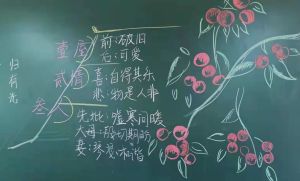 归有光
壹屋
前:破旧
后:可爱
贰情
喜:自得其乐
悲:物是人非
叁人
先妣:嘘寒问暖
大母:殷切期盼
妻:琴瑟和谐